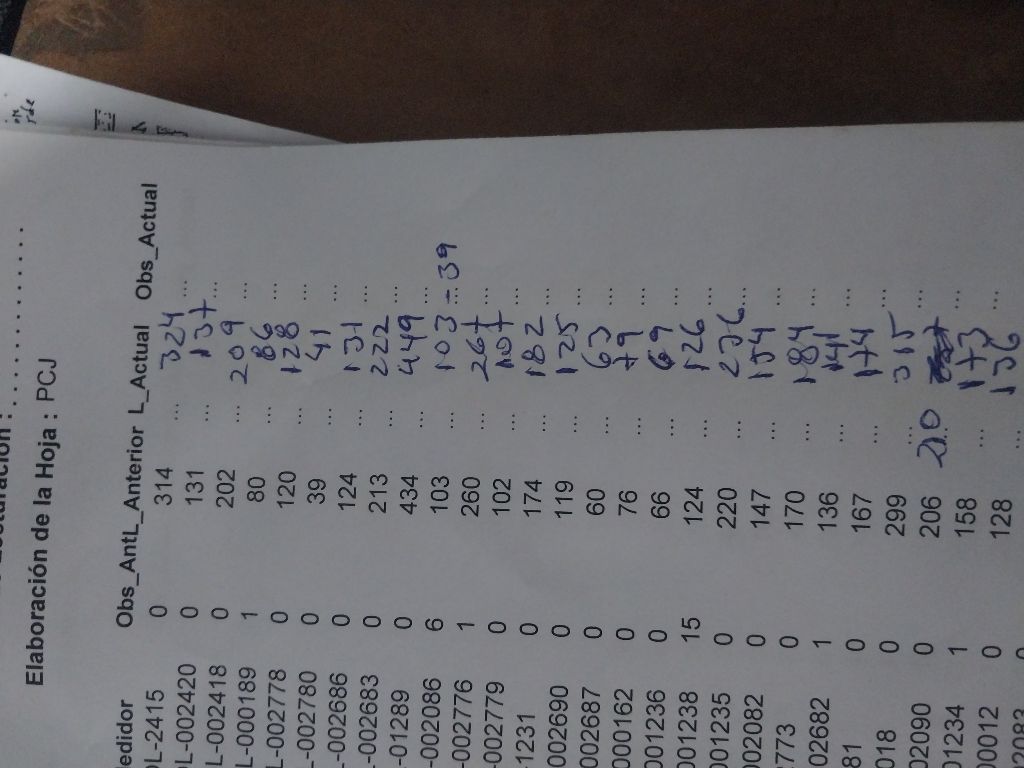 Elaboración de la Hoja : PCJ
edidor Obs_Ant L_Anterior L_Actual Obs_Actual
OL-2415 0 314 ... 324 ...
OL-002420 0 131 ... 137 ...
L-002418 0 202 ... 209 ...
L-000189 1 80 ... 86 ...
L-002778 0 120 ... 128 ...
L-002780 0 39 ... 41 ...
L-002686 0 124 ... 131 ...
-002683 0 213 ... 222 ...
-01289 0 434 ... 449 ...
-002086 6 103 ... 103 - 39
-002776 1 260 ... 267 ...
-002779 0 102 ... 107 ...
1231 0 174 ... 182 ...
002690 0 119 ... 125 ...
002687 0 60 ... 63 ...
000162 0 76 ... 79 ...
001236 0 66 ... 69 ...
001238 15 124 ... 126 ...
001235 0 220 ... 236 ...
002082 0 147 ... 154 ...
773 0 170 ... 184 ...
02682 1 136 ... 141 ...
81 0 167 ... 174 ...
018 0 299 ... 315 ...
02090 0 206 ... 210
01234 1 158 ... 173 ...
00012 0 128 ... 136 ...
02083 0